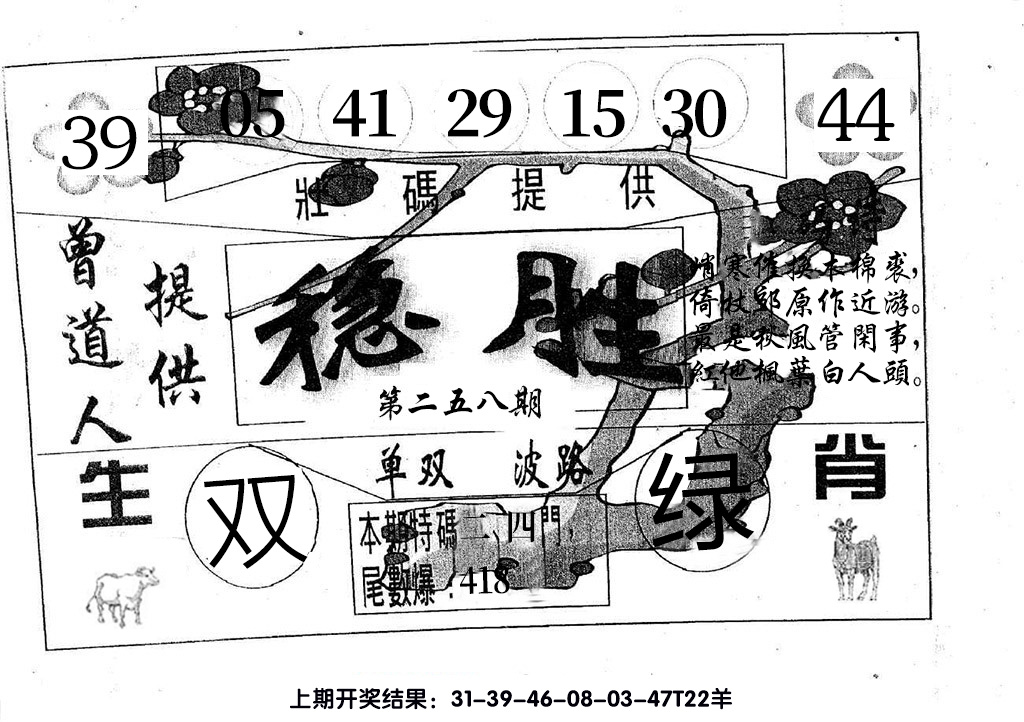 39 05 41 29 15 30 44
壯碼提供
曾道人
提供
稳胜
第二五八期
特
峭寒催换木棉裘，
倚杖郊原作近游。
最是秋風管閑事，
紅他楓葉白人頭。
单双 波路
生肖
双 绿
本期特碼二、四門，
尾數爆：418
上期开奖结果：31-39-46-08-03-47T22羊